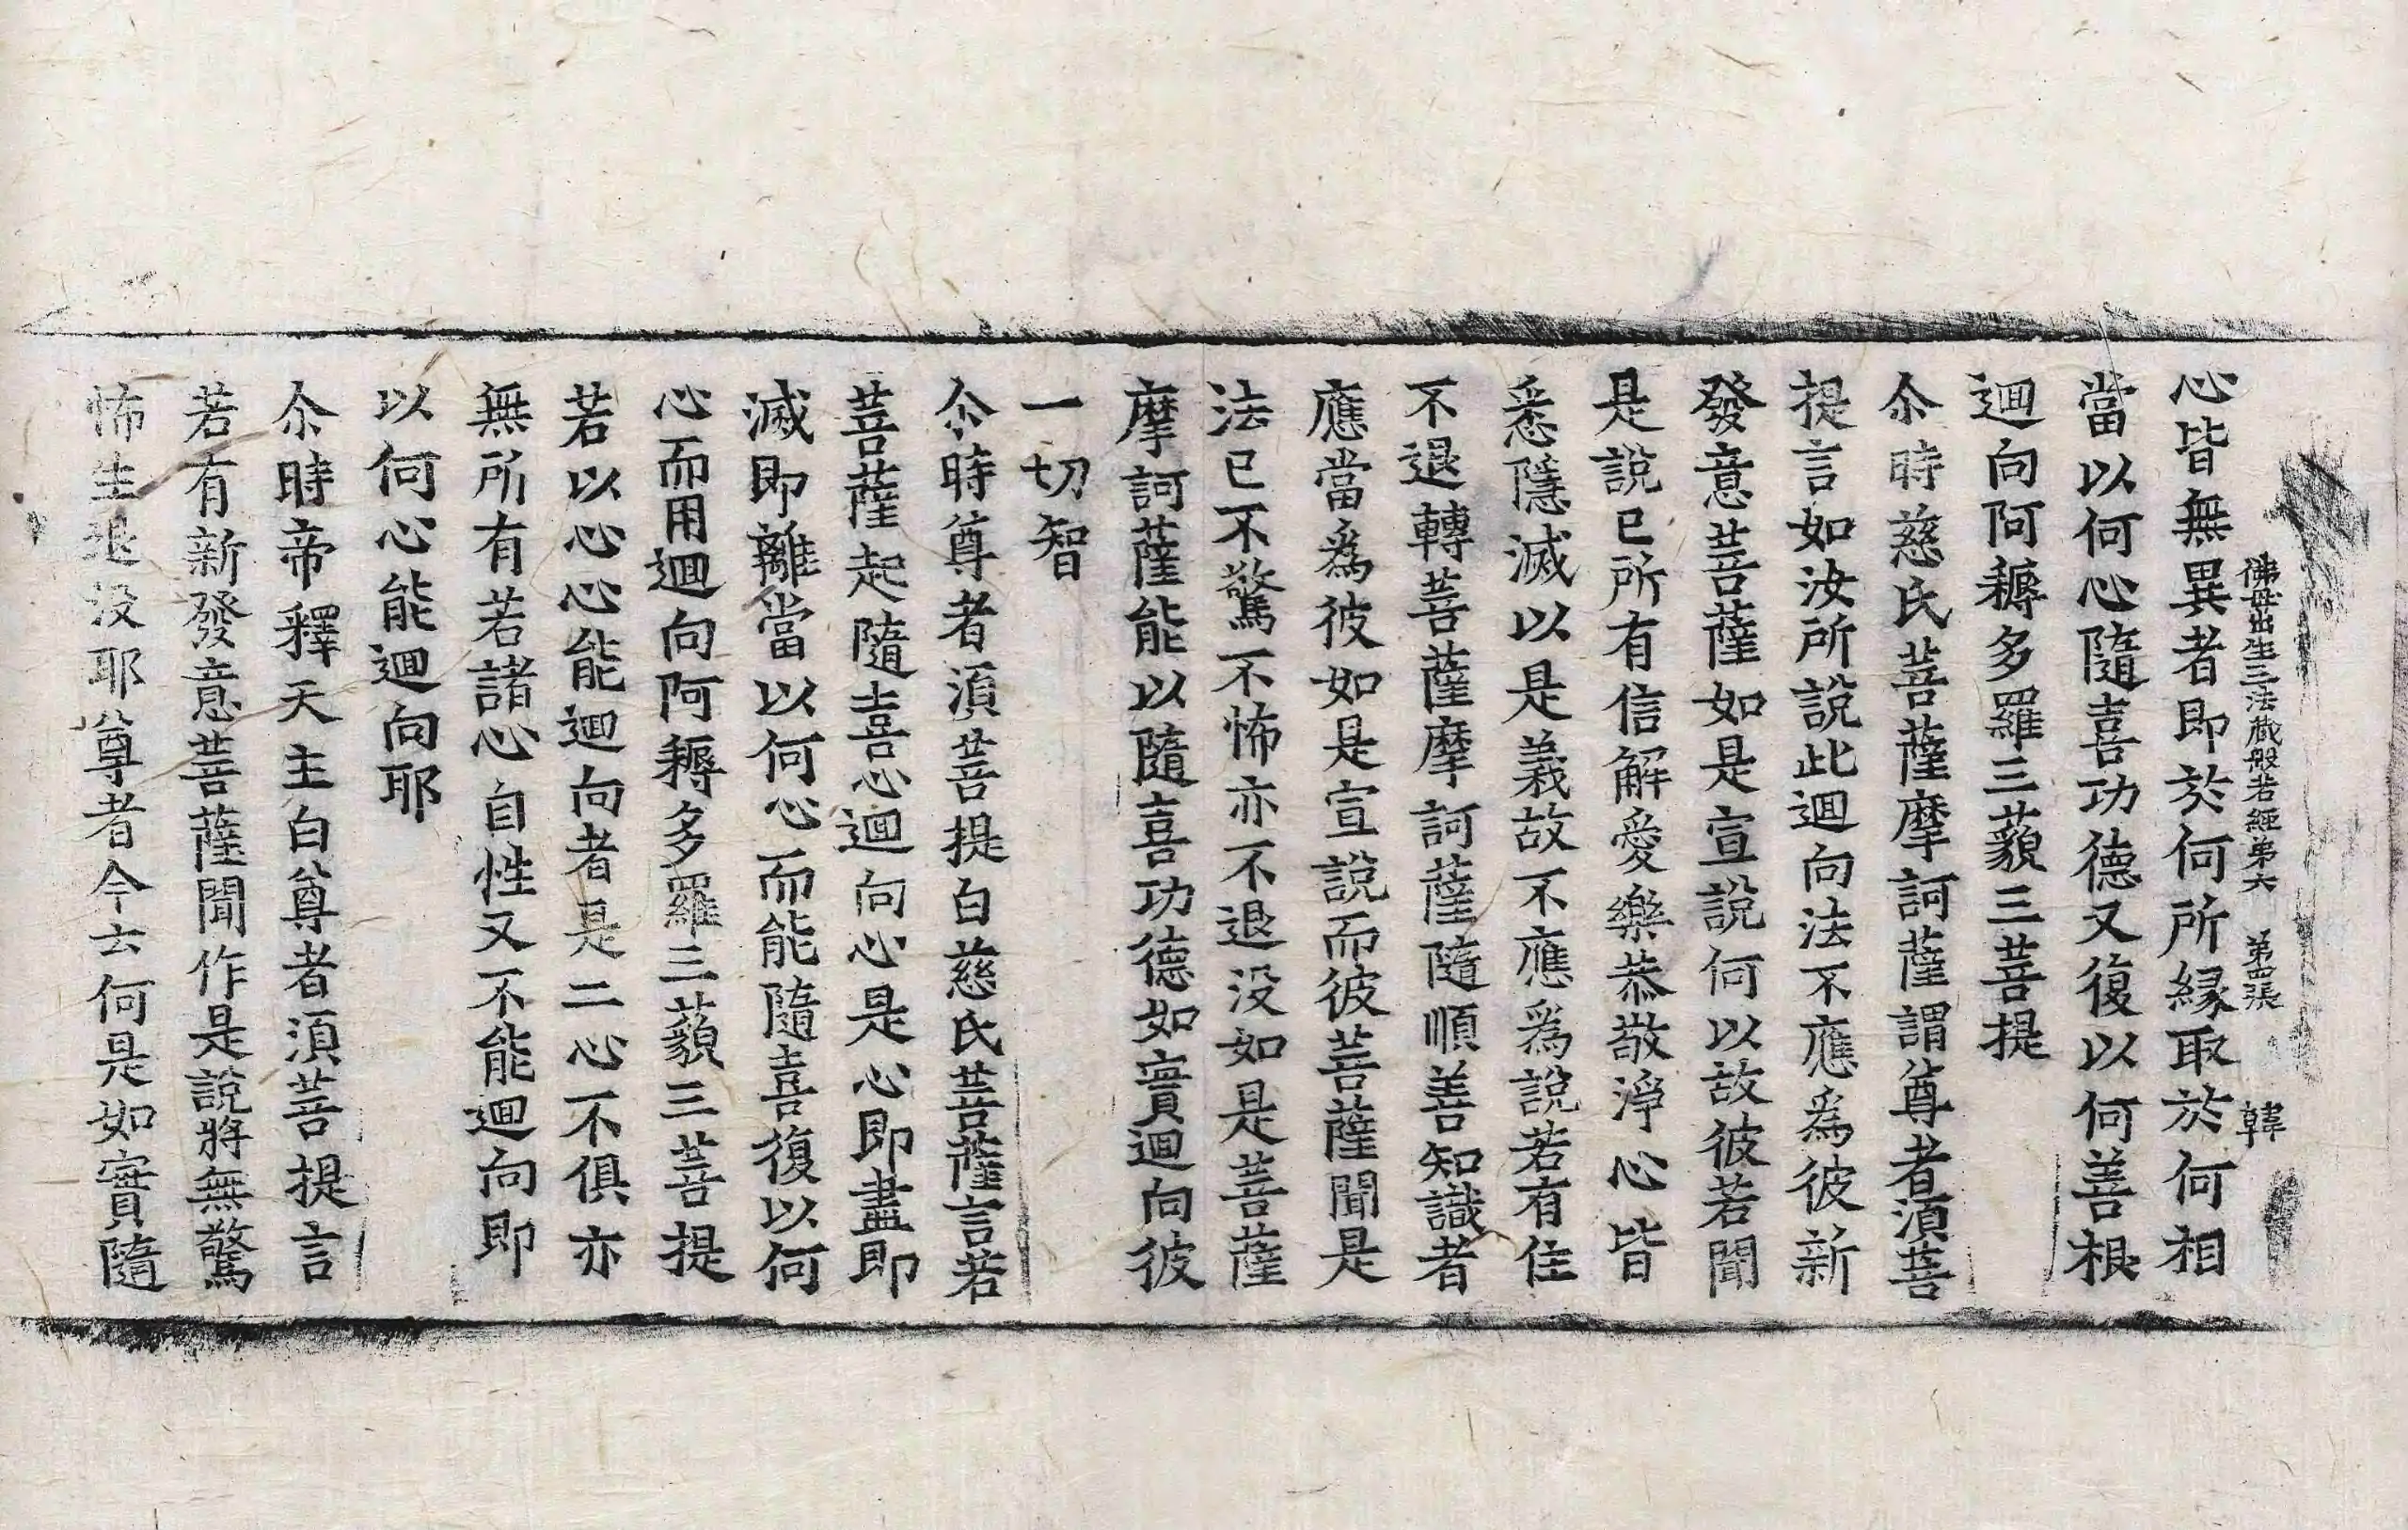 佛母出生三法藏般若經第六　第四張　韓
心皆無異者即於何所緣取於何相
當以何心隨喜功德又復以何善根
迴向阿耨多羅三藐三菩提
尒時慈氏菩薩摩訶薩謂尊者須菩
提言如汝所說此迴向法不應為彼新
發意菩薩如是宣說何以故彼若聞
是說已所有信解愛樂恭敬淨心皆
悉隱滅以是義故不應為說若有住
不退轉菩薩摩訶薩隨順善知識者
應當為彼如是宣說而彼菩薩聞是
法已不驚不怖亦不退没如是菩薩
摩訶薩能以隨喜功德如實迴向彼
一切智
尒時尊者須菩提白慈氏菩薩言若
菩薩起隨喜心迴向心是心即盡即
滅即離當以何心而能隨喜復以何
心而用迴向阿耨多羅三藐三菩提
若以心心能迴向者是二心不俱亦
無所有若諸心自性又不能迴向即
以何心能迴向耶
尒時帝釋天主白尊者須菩提言
若有新發意菩薩聞作是說將無驚
怖生退没耶尊者今云何是如實隨